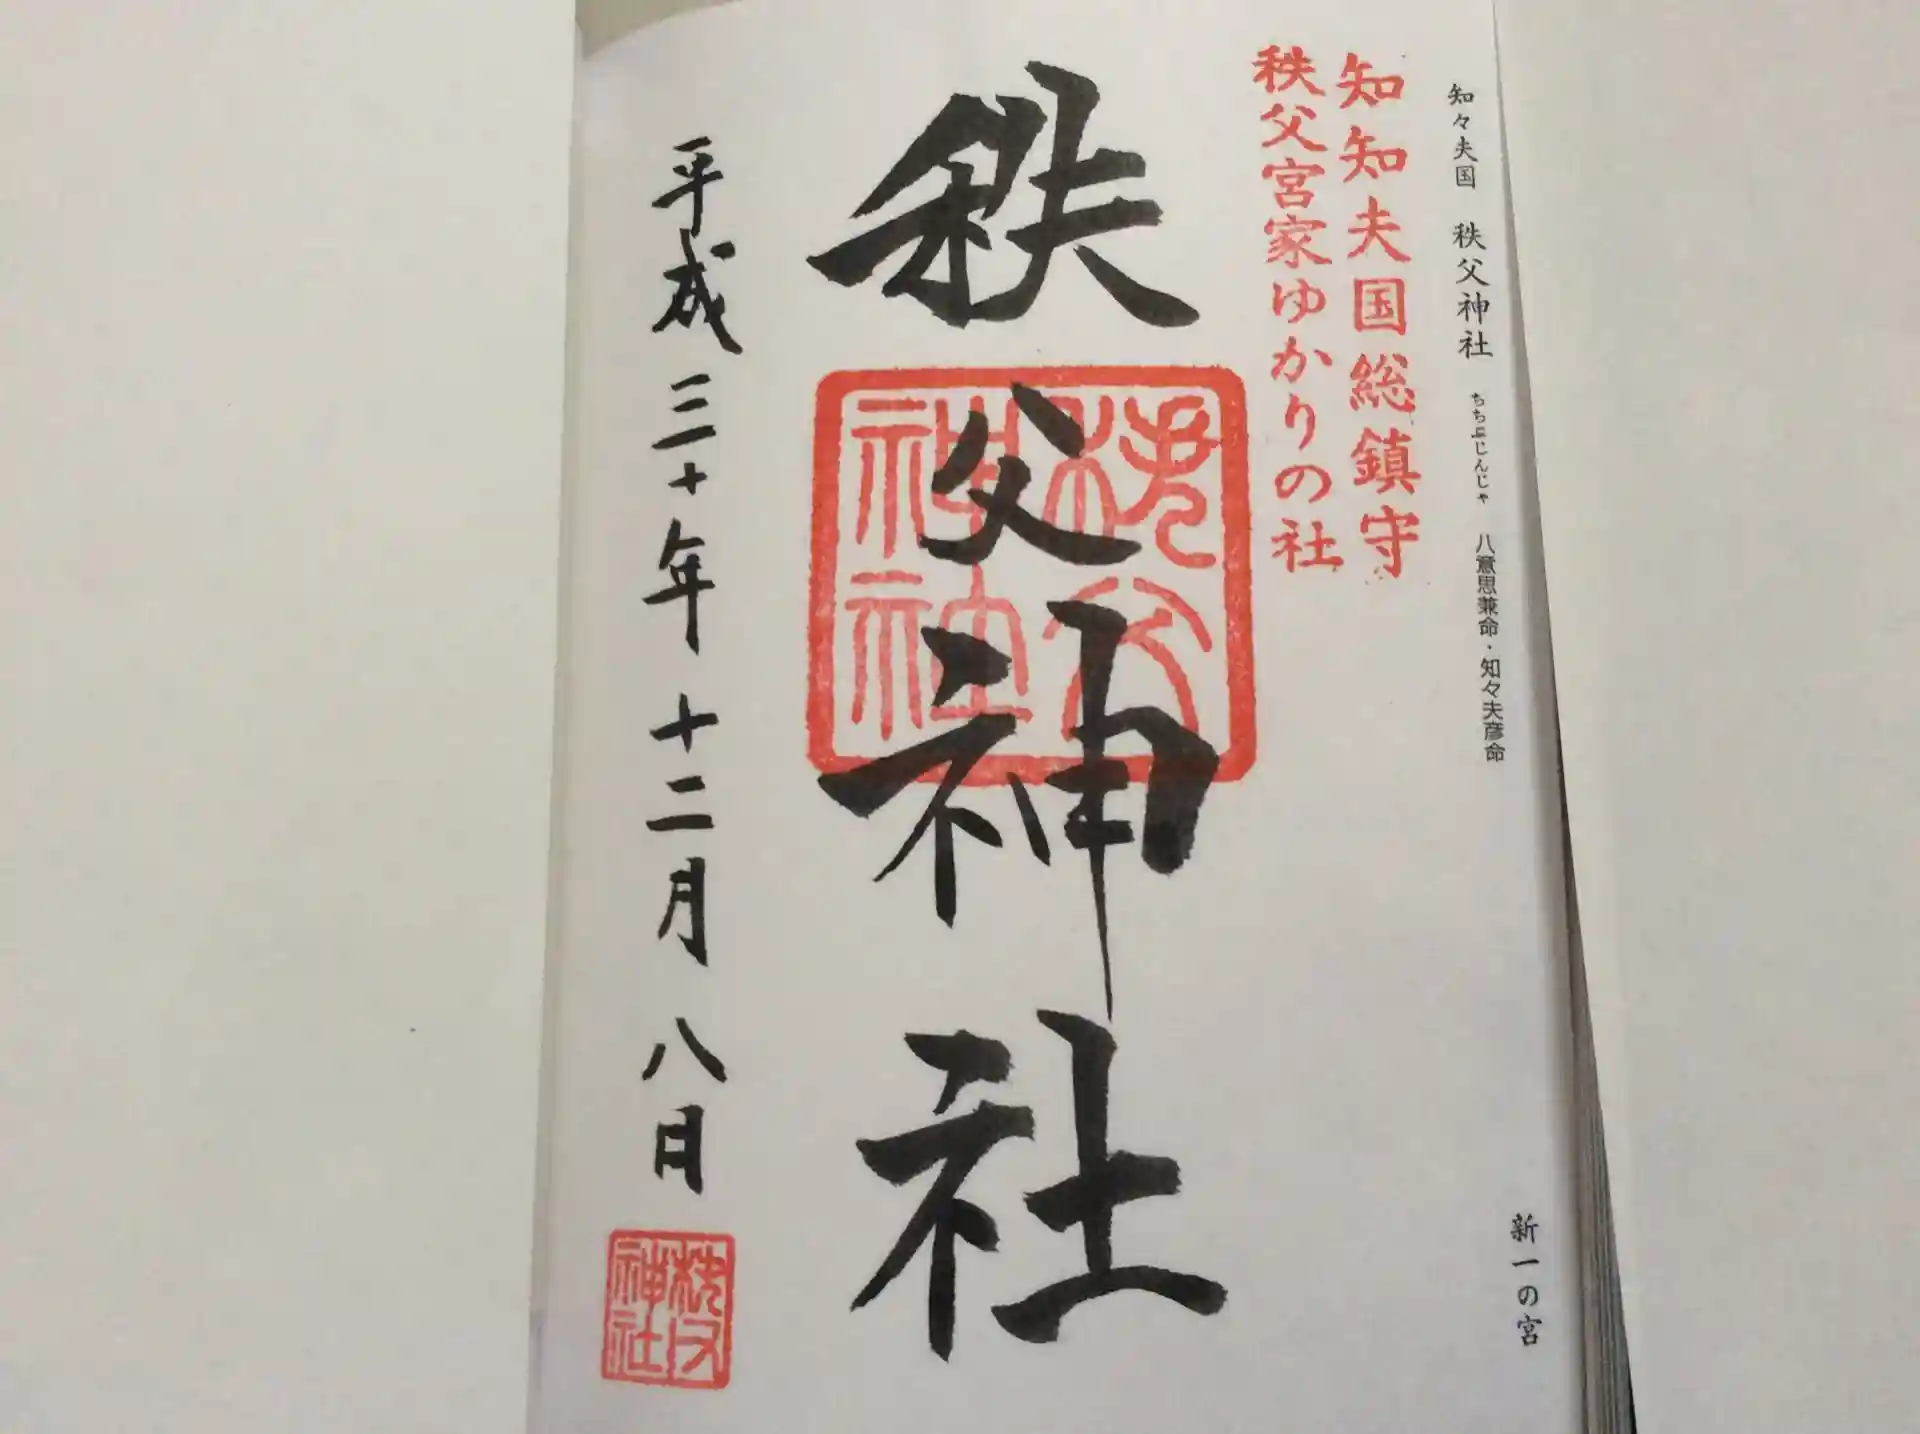 知々夫国 秩父神社 ちちぶじんじゃ 八意思兼命・知々夫彦命
新一の宮
知知夫国総鎮守
秩父宮家ゆかりの社
秩父神社
秩父神社
平成三十年十二月八日
秩父神社